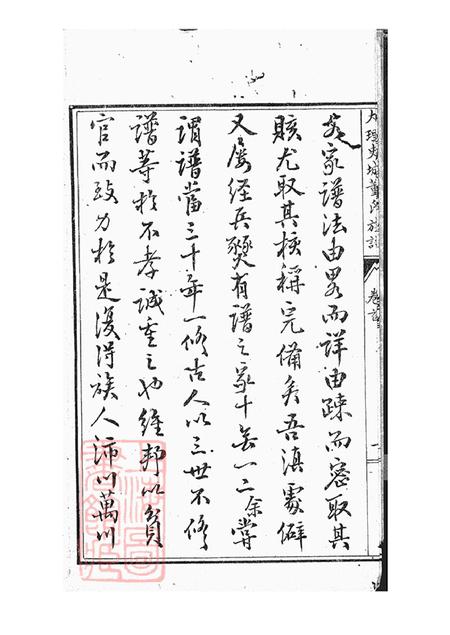 大理史城董氏族譜 卷首
各家譜法由畧而詳由疎而密取其
賅尤取其核稱完備矣吾滇處僻
又屢經兵燹有譜之家十無一二余嘗
謂譜當三十年一修古人以三世不修
譜等於不孝誠重之也維邦以貧
官而致力於是復得族人沛川萬川